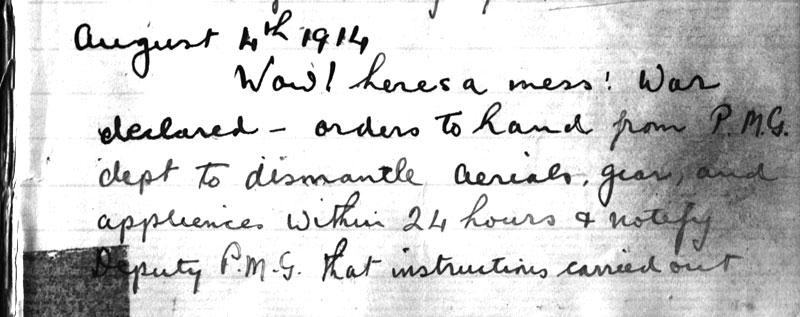 August 4th 1914
Wow! heres a mess! War
declared - orders to hand from P.M.G.
dept to dismantle aerials, gear, and
appliences within 24 hours & notify
Deputy P.M.G. that instructions carried out